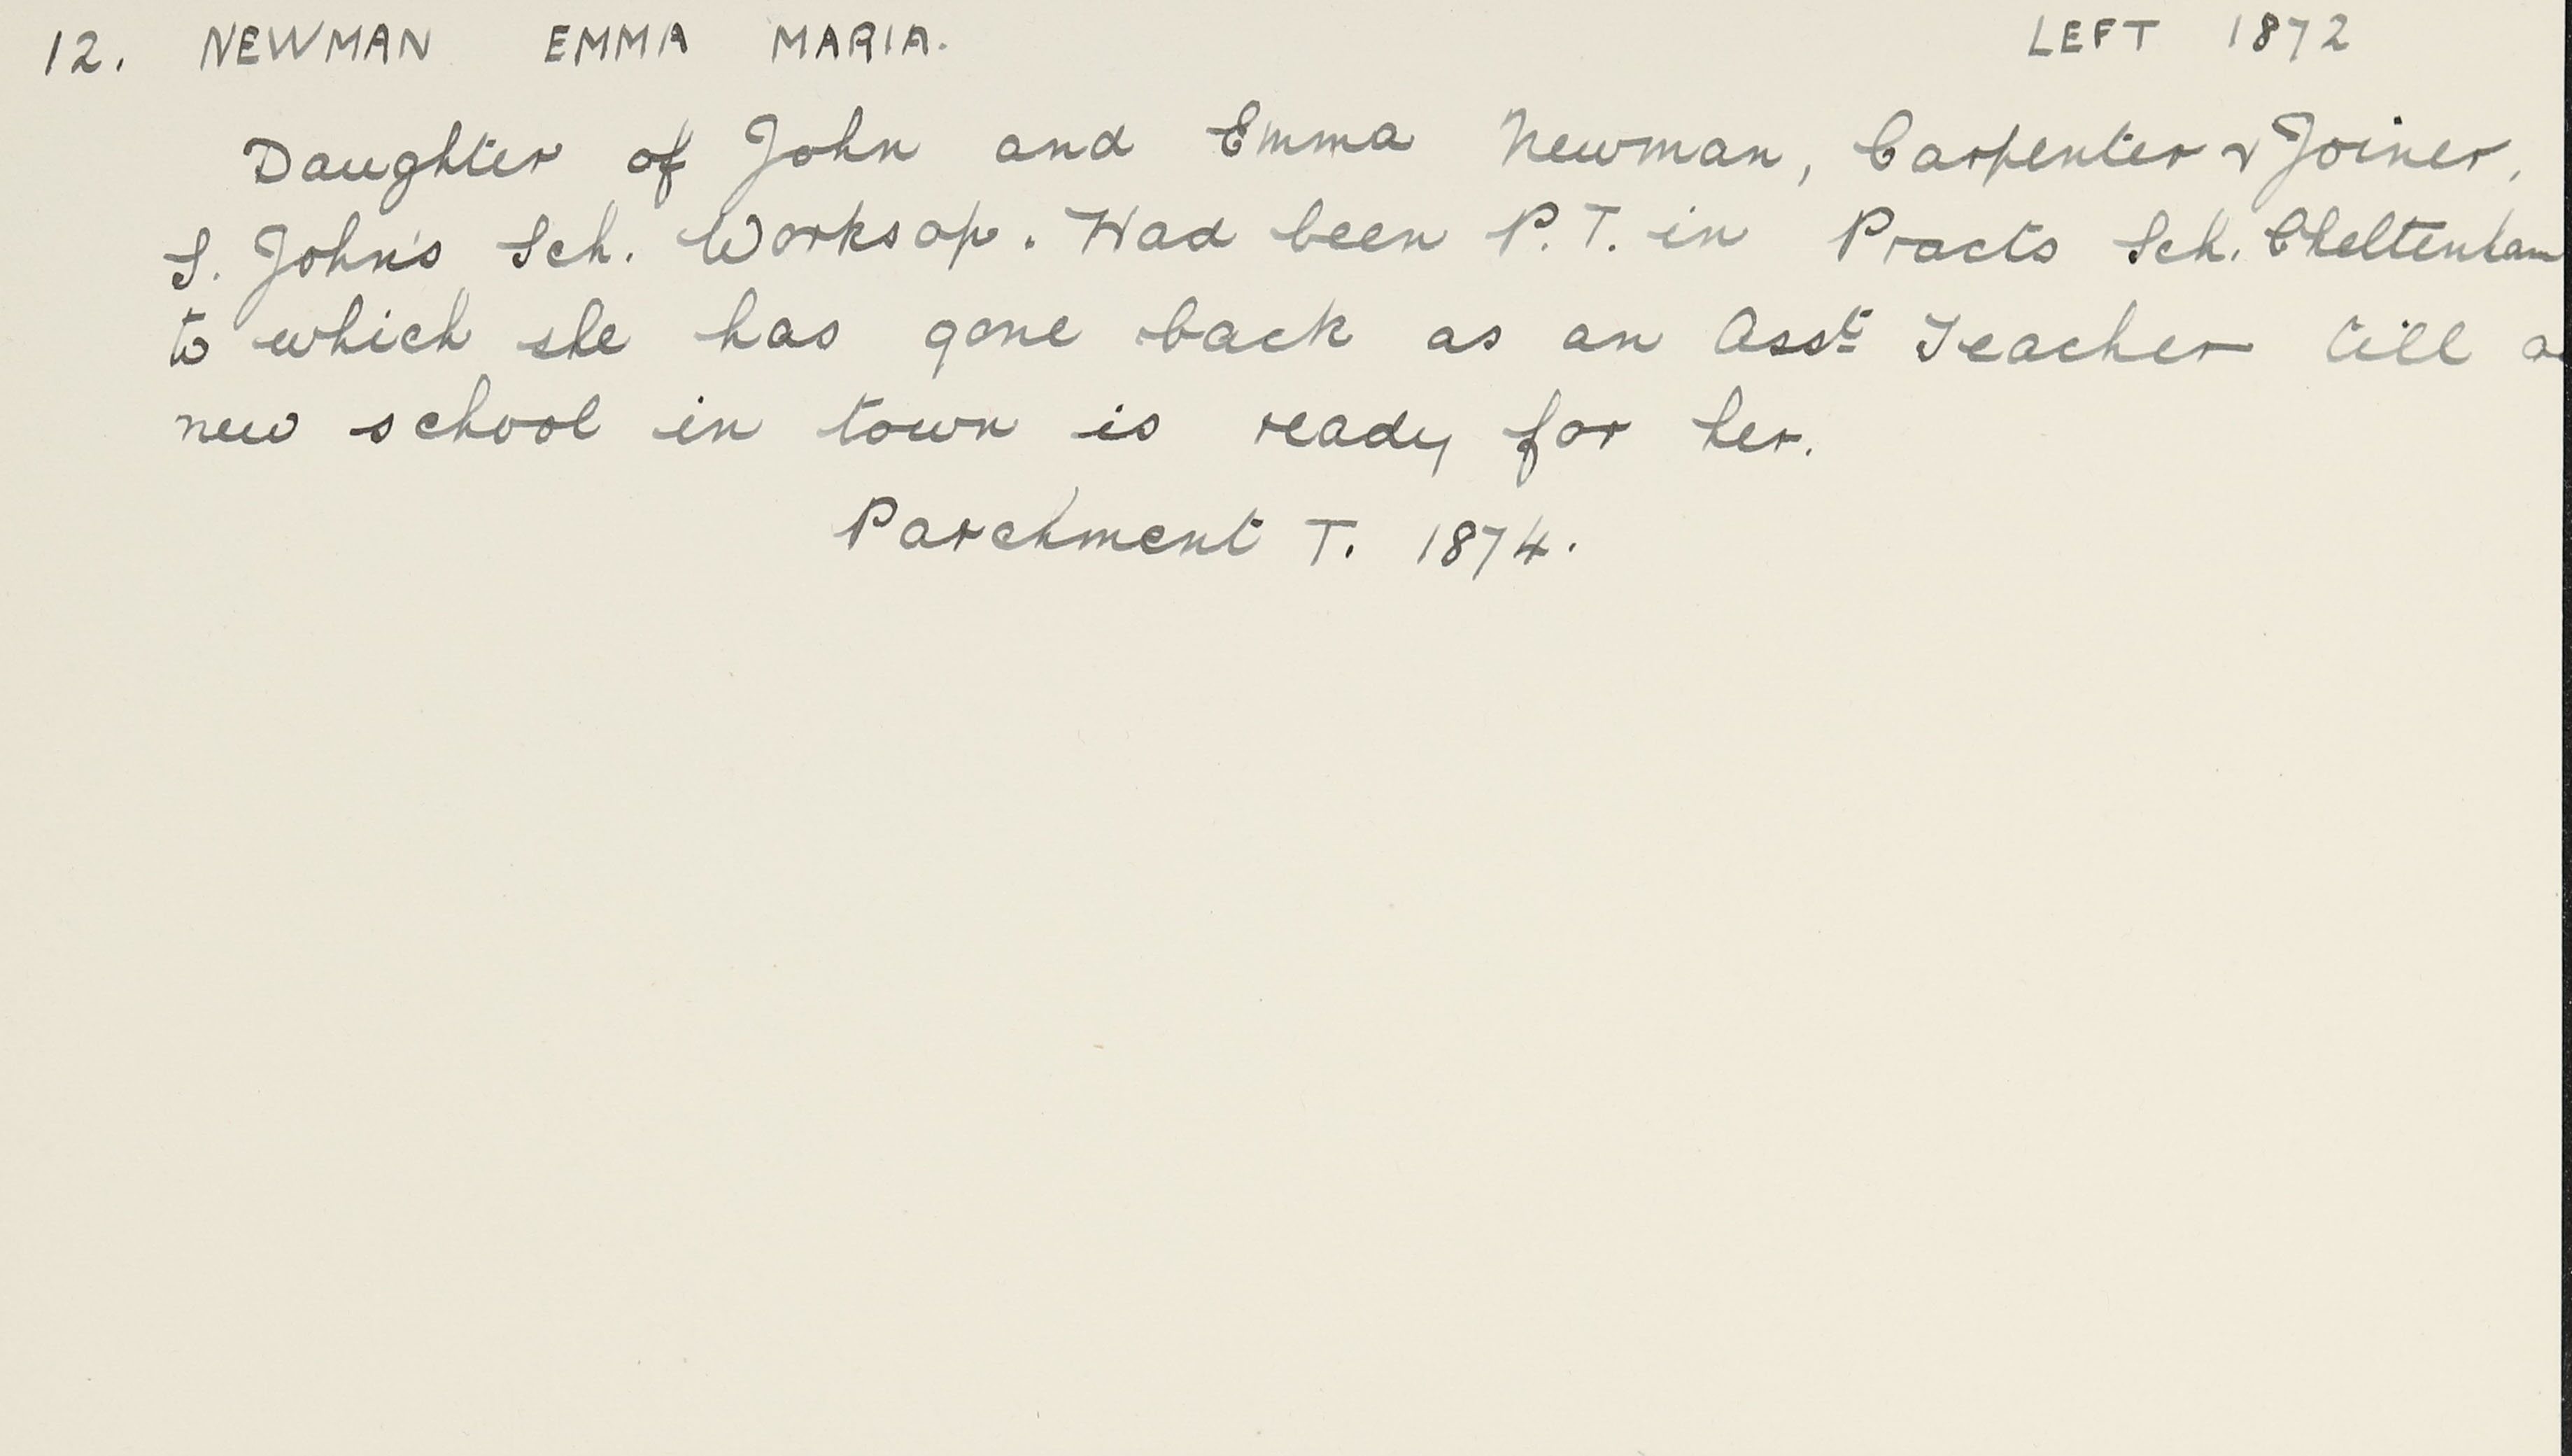 12. NEWMAN EMMA MARIA. LEFT 1872
Daughter of John and Emma Newman, Carpenter & Joiner,
S. John's Sch. Worksop. Had been P.T. in Practs Sch. Cheltenham
to which she has gone back as an Asst Teacher till a
new school in town is ready for her.
Parchment T. 1874.